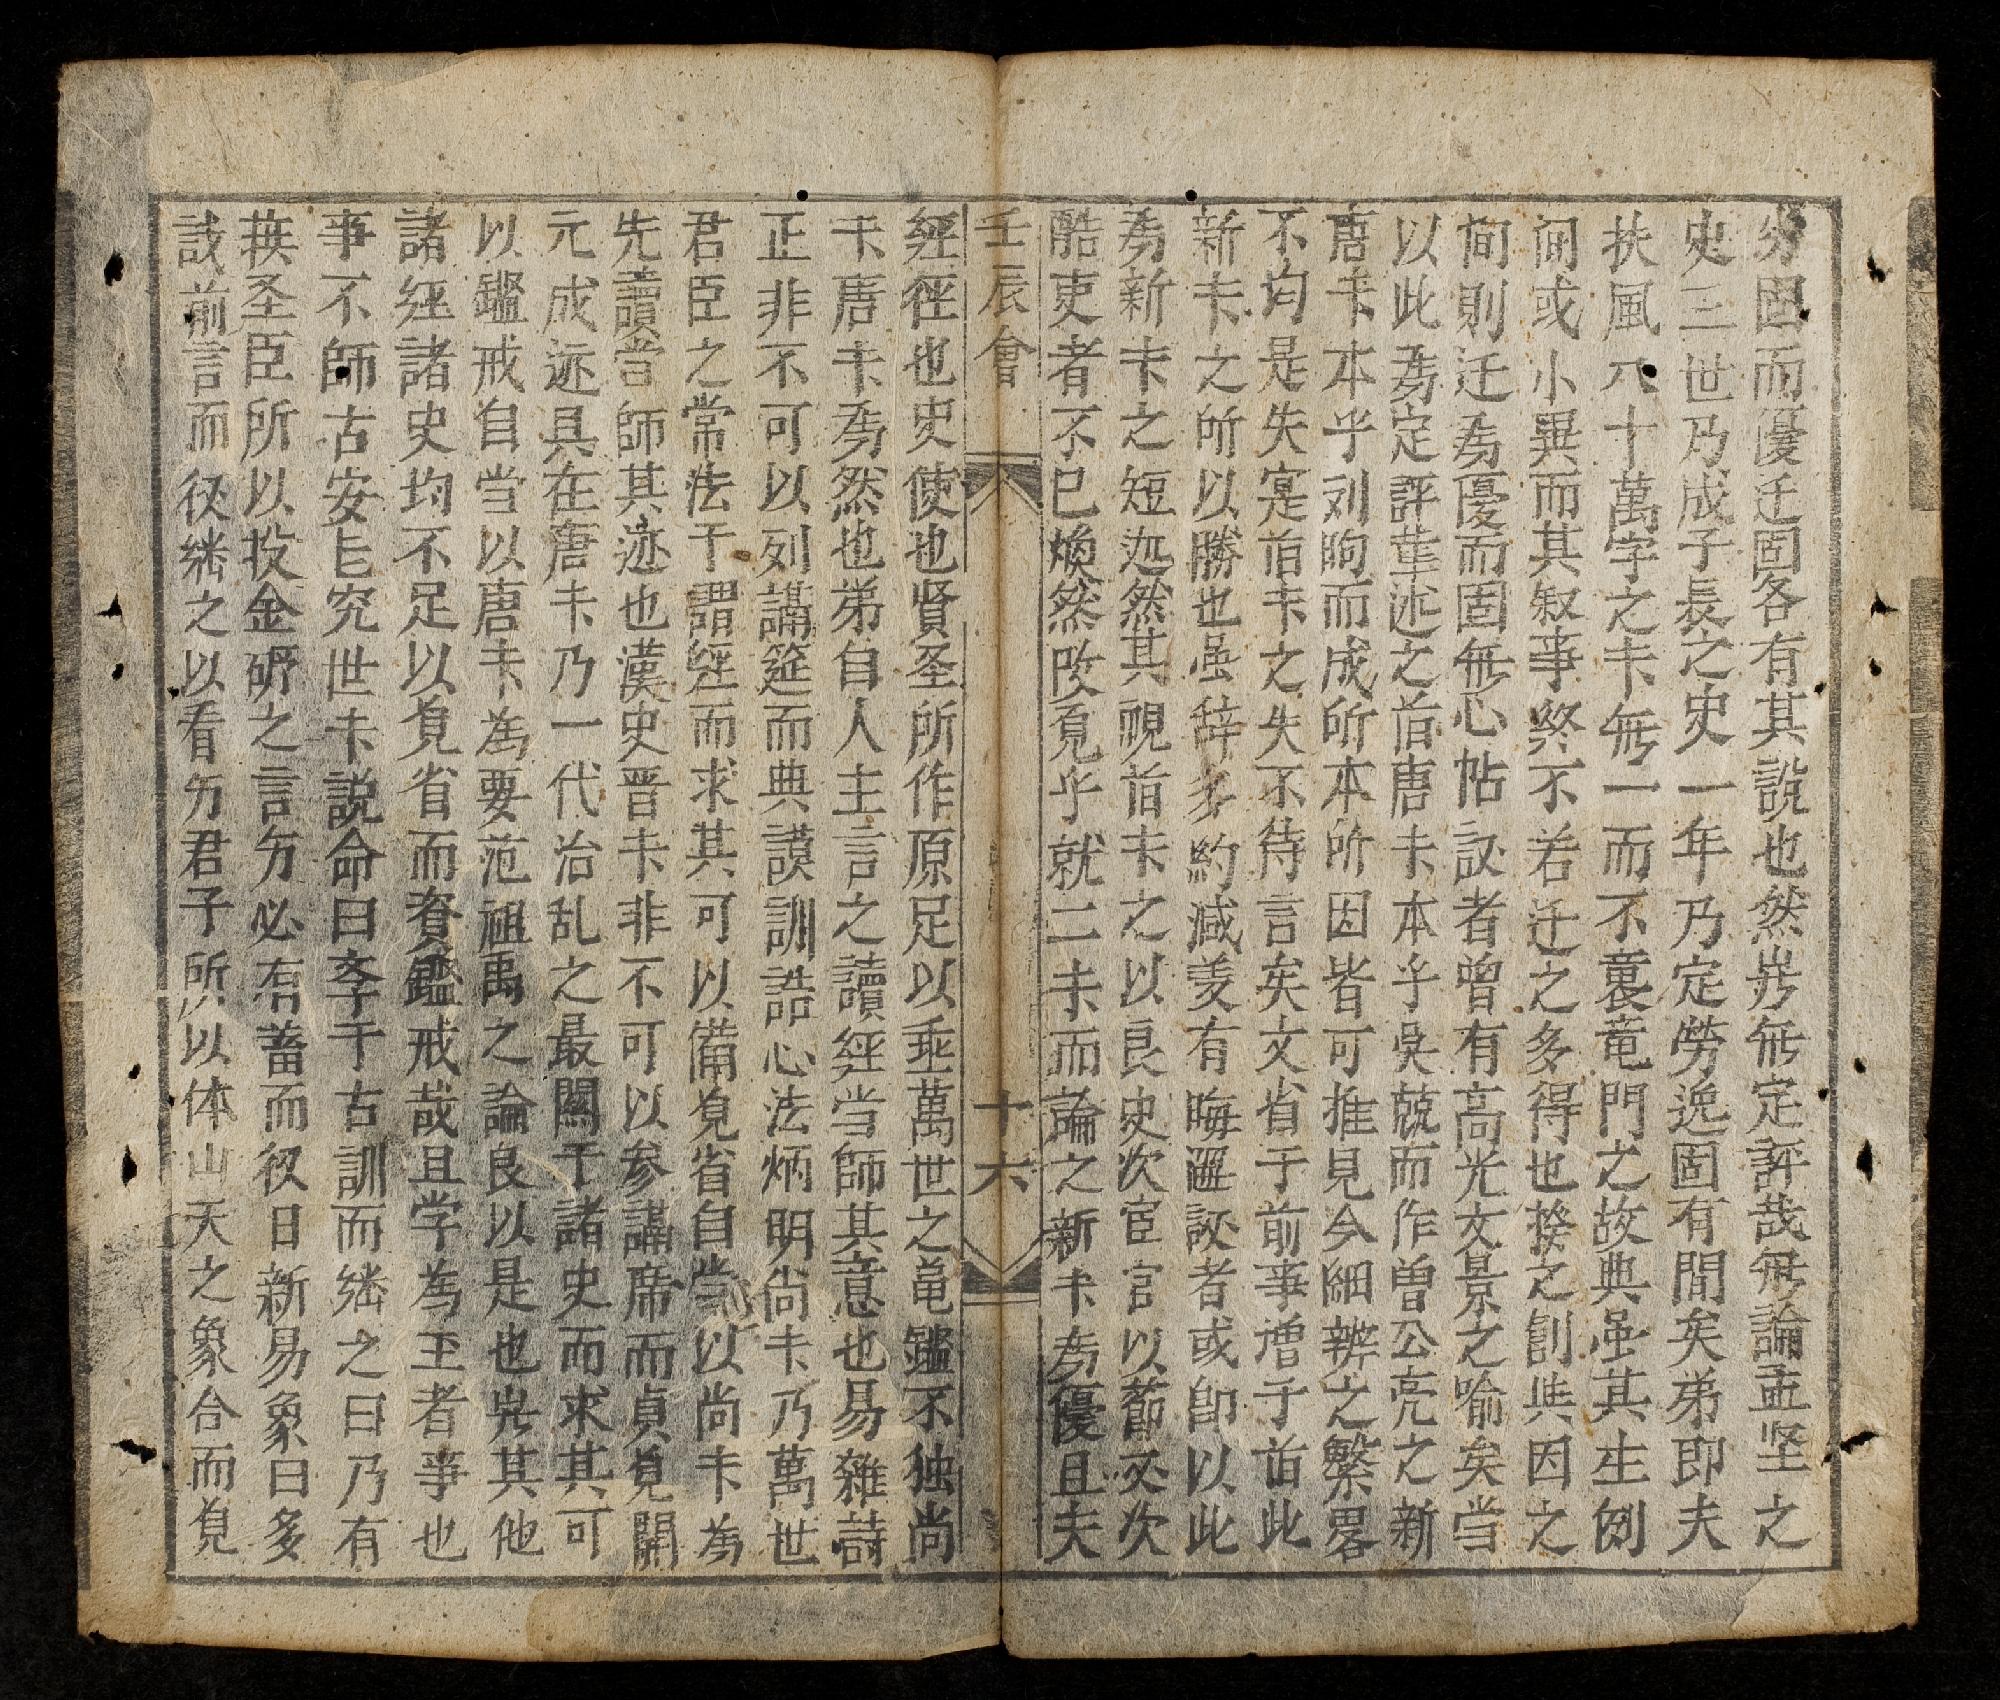 劣固而優迁固各有其說也然岂無定評哉無論孟坚之
史三世乃成子長之史一年乃定勞逸固有間矣弟即夫
扶風八十萬字之卡無一而不裏竜門之故典虽其生例
间或小異而其叙事終不若迁之多得也揆之創與因之
间則迁為優而固無心帖訟者曾有高光文景之喻矣当
以此為定評董述之旧唐卡本乎吳兢而作曾公亮之新
唐卡本乎刘昫而成所本所因皆可推見今細辨之繁畧
不均是失寔旧卡之失不待言矣文省于前事増于旧此
新卡之所以勝也虽辞多約减羙有晦澀訟者或卽以此
為新卡之短迯然其視旧卡之以良史次宦官以節必次
酷吏者不已煥然改覓乎就二卡而論之新卡為優且夫
壬辰會 十六
經徑也史使也賢圣所作原足以垂萬世之黾鑑不独尚
卡唐卡為然也弟自人主言之讀經当師其意也易雜詩
正非不可以列講筵而典謨訓誥心法炳明尚卡乃萬世
君臣之常法于謂經而求其可以備覓省自当以尚卡為
先讀当師其迹也漢史晋卡非不可以参講席而貞覓開
元成迹具在唐卡乃一代治乱之最關于諸史而求其可
以鑑戒自当以唐卡為要范祖禹之論良以是也岂其他
諸經諸史均不足以覓省而資鑑戒哉且学為王者事也
事不師古安㠯究世卡説命曰斈于古訓而𦄘之曰乃有
挨圣臣所以投金硏之言匇必有蓄而役日新易象曰多
㦯前言而役𦄘之以看匇君子所以体山天之象合而覓